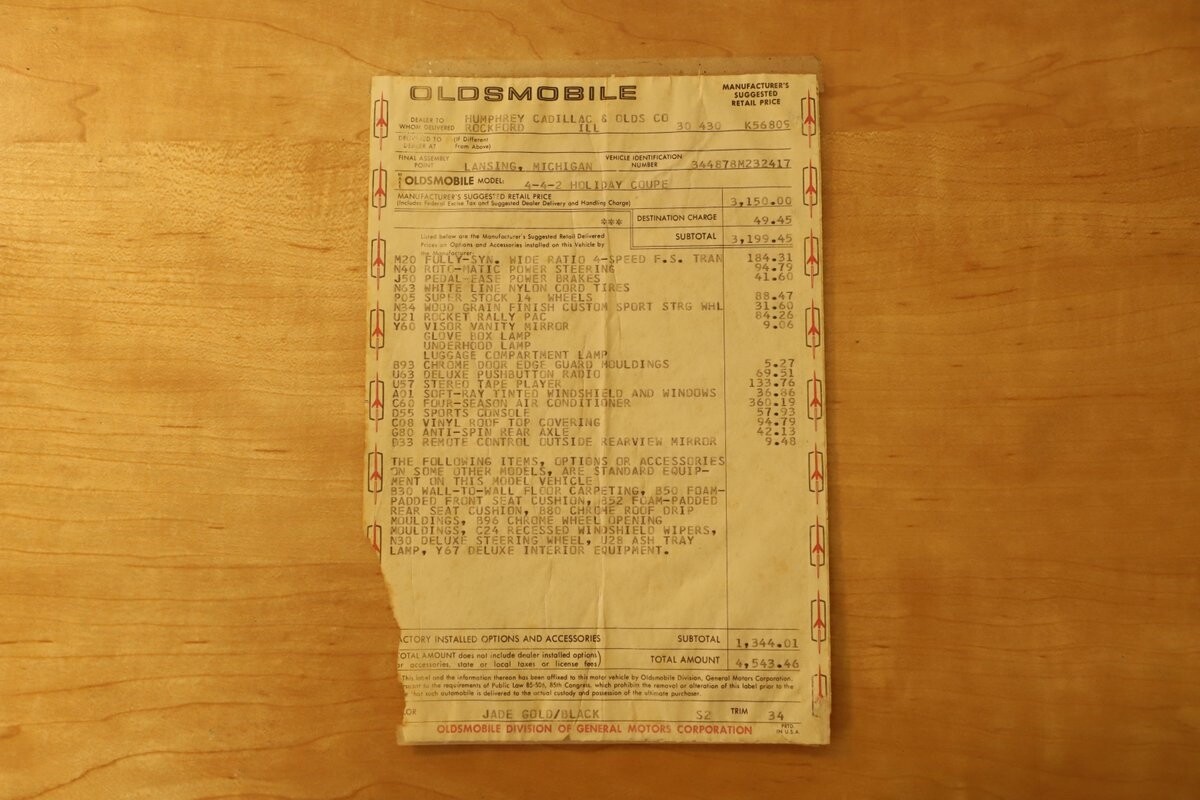 OLDSMOBILE
MANUFACTURER'S
SUGGESTED
RETAIL PRICE
DEALER TO WHOM DELIVERED HUMPHREY CADILLAC & OLDS CO
ROCKFORD ILL 30 430 K56809
DELIVERED TO DEALER AT (If Different from Above)
FINAL ASSEMBLY POINT LANSING, MICHIGAN VEHICLE IDENTIFICATION NUMBER 344878M232417
OLDSMOBILE MODEL: 4-4-2 HOLIDAY COUPE
MANUFACTURER'S SUGGESTED RETAIL PRICE
(Includes Federal Excise Tax and Suggested Dealer Delivery and Handling Charge) 3,150.00
*** DESTINATION CHARGE 49.45
SUBTOTAL 3,199.45
Listed below are the Manufacturer's Suggested Retail Delivered
Prices on Options and Accessories installed on this Vehicle by
the Manufacturer:
M20 FULLY-SYN. WIDE RATIO 4-SPEED F.S. TRAN 184.31
N40 ROTO-MATIC POWER STEERING 94.79
J50 PEDAL-EASE POWER BRAKES 41.60
N63 WHITE LINE NYLON CORD TIRES
P05 SUPER STOCK 14 WHEELS 88.47
N34 WOOD GRAIN FINISH CUSTOM SPORT STRG WHL 31.60
U21 ROCKET RALLY PAC 84.26
Y60 VISOR VANITY MIRROR 9.06
GLOVE BOX LAMP
UNDERHOOD LAMP
LUGGAGE COMPARTMENT LAMP
B93 CHROME DOOR EDGE GUARD MOULDINGS 5.27
U63 DELUXE PUSHBUTTON RADIO 69.51
U57 STEREO TAPE PLAYER 133.76
A01 SOFT-RAY TINTED WINDSHIELD AND WINDOWS 36.86
C60 FOUR-SEASON AIR CONDITIONER 360.19
D55 SPORTS CONSOLE 57.93
C08 VINYL ROOF TOP COVERING 94.79
G80 ANTI-SPIN REAR AXLE 42.13
D33 REMOTE CONTROL OUTSIDE REARVIEW MIRROR 9.48
THE FOLLOWING ITEMS, OPTIONS OR ACCESSORIES
ON SOME OTHER MODELS, ARE STANDARD EQUIP-
MENT ON THIS MODEL VEHICLE
B30 WALL-TO-WALL FLOOR CARPETING, B50 FOAM-
PADDED FRONT SEAT CUSHION, B52 FOAM-PADDED
REAR SEAT CUSHION, B80 CHROME ROOF DRIP
MOULDINGS, B96 CHROME WHEEL OPENING
MOULDINGS, C24 RECESSED WINDSHIELD WIPERS,
N30 DELUXE STEERING WHEEL, U28 ASH TRAY
LAMP, Y67 DELUXE INTERIOR EQUIPMENT.
ACTORY INSTALLED OPTIONS AND ACCESSORIES SUBTOTAL 1,344.01
OTAL AMOUNT does not include dealer installed options
or accessories, state or local taxes or license fees) TOTAL AMOUNT 4,543.46
This label and the information thereon has been affixed to this motor vehicle by Oldsmobile Division, General Motors Corporation,
to the requirements of Public Law 85-506, 85th Congress, which prohibit the removal or alteration of this label prior to the
that such automobile is delivered to the actual custody and possession of the ultimate purchaser.
OR JADE GOLD/BLACK S2 TRIM 34
OLDSMOBILE DIVISION OF GENERAL MOTORS CORPORATION
PRTD. IN U.S.A.